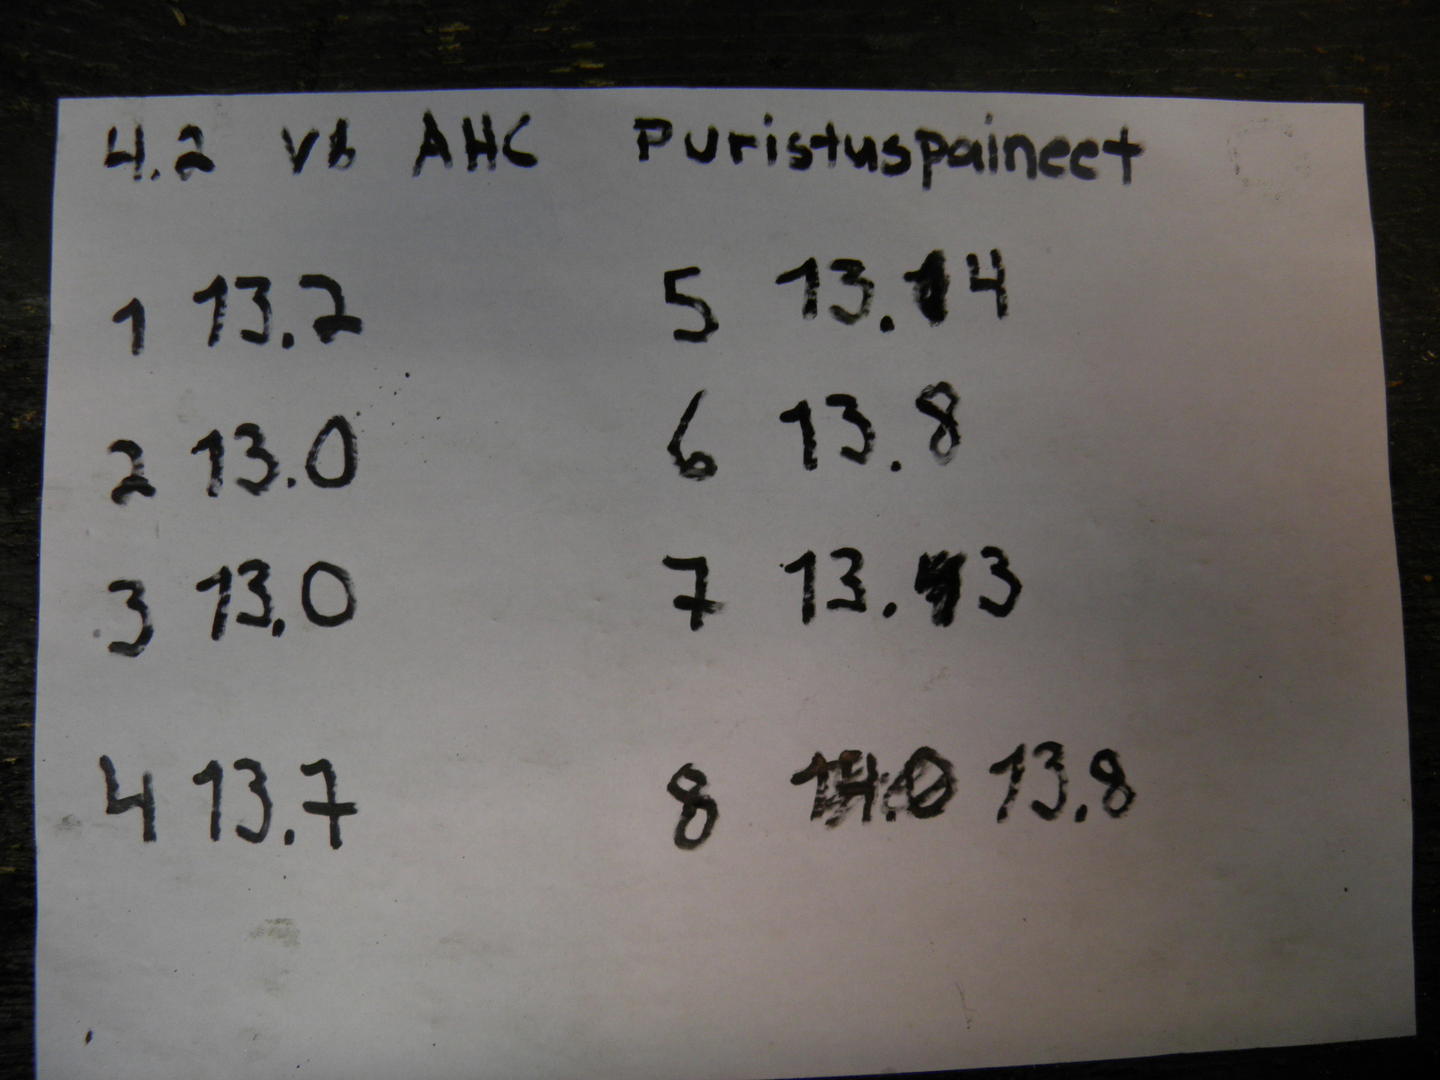 4.2 V8 AHC Puristuspaineet
1 13.2 5 13.4
2 13.0 6 13.8
3 13.0 7 13.3
4 13.7 8 14.0 13.8